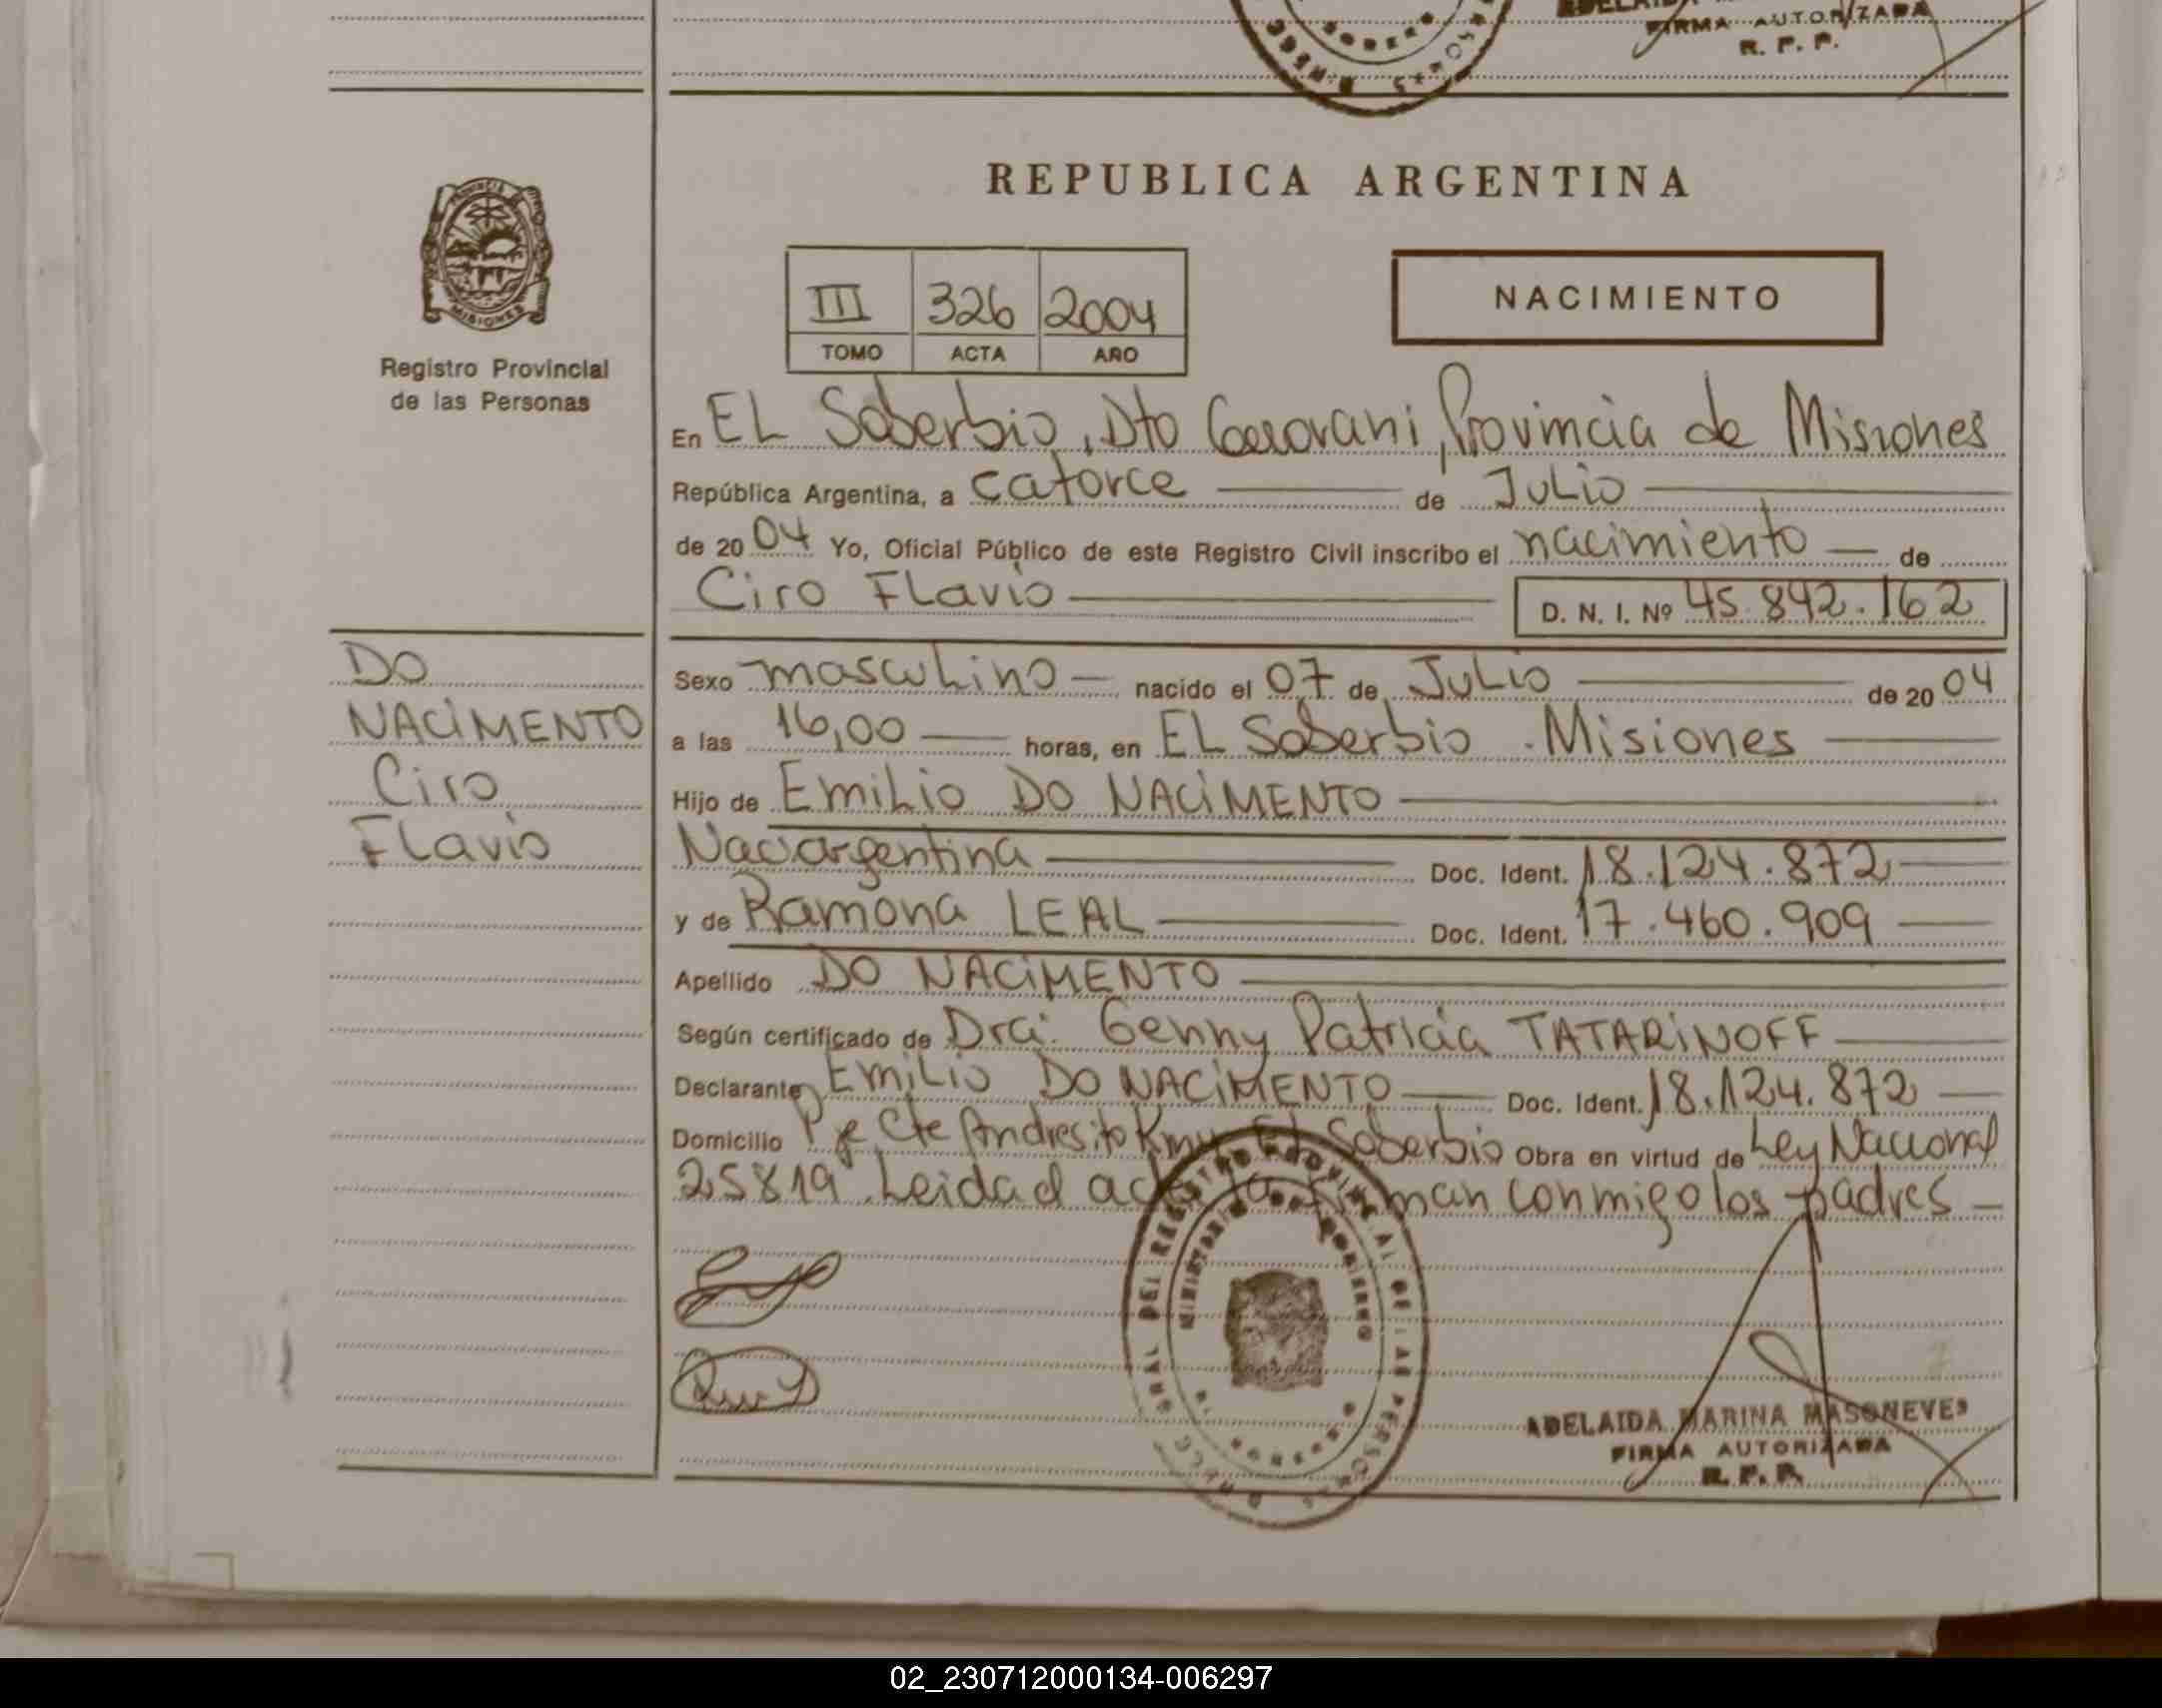 FIRMA AUTORIZADA
R. P. P.
REPUBLICA ARGENTINA
PROVINCIA
MISIONES
Registro Provincial
de las Personas
III 326 2004
TOMO ACTA AÑO
NACIMIENTO
En EL Soberbio, Dto Guaraní, Provincia de Misiones
República Argentina, a catorce de Julio
de 2004 Yo, Oficial Público de este Registro Civil inscribo el nacimiento de
Ciro Flavio D. N. I. Nº 45.842.162
DO
NACIMENTO
Ciro
Flavio
Sexo masculino nacido el 07 de Julio de 2004
a las 16,00 horas, en EL Soberbio . Misiones
Hijo de Emilio DO NACIMENTO
Nac argentina Doc. Ident. 18.124.872
y de Ramona LEAL Doc. Ident. 17.460.909
Apellido DO NACIMENTO
Según certificado de Dra. Genny Patricia TATARINOFF
Declarante Emilio DO NACIMENTO Doc. Ident. 18.124.872
Domicilio Pje Cte Andresito Km EL Soberbio Obra en virtud de Ley Nacional
25819 Leida el acta la firman conmigo los padres
ADELAIDA MARINA MASONEVES
FIRMA AUTORIZADA
R. P. P.
02_230712000134-006297